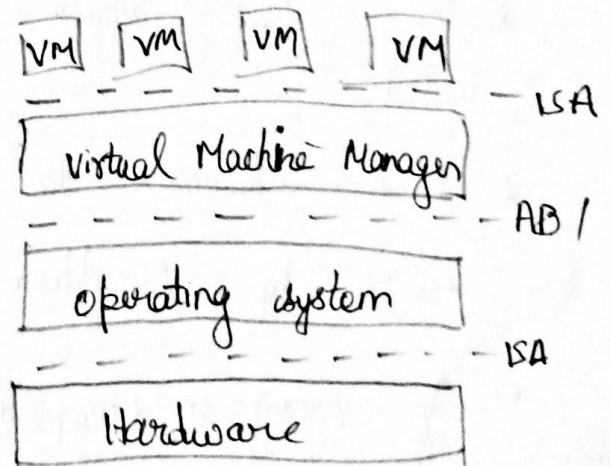 VM VM VM VM
ISA
Virtual Machine Manager
ABI
operating system
ISA
Hardware